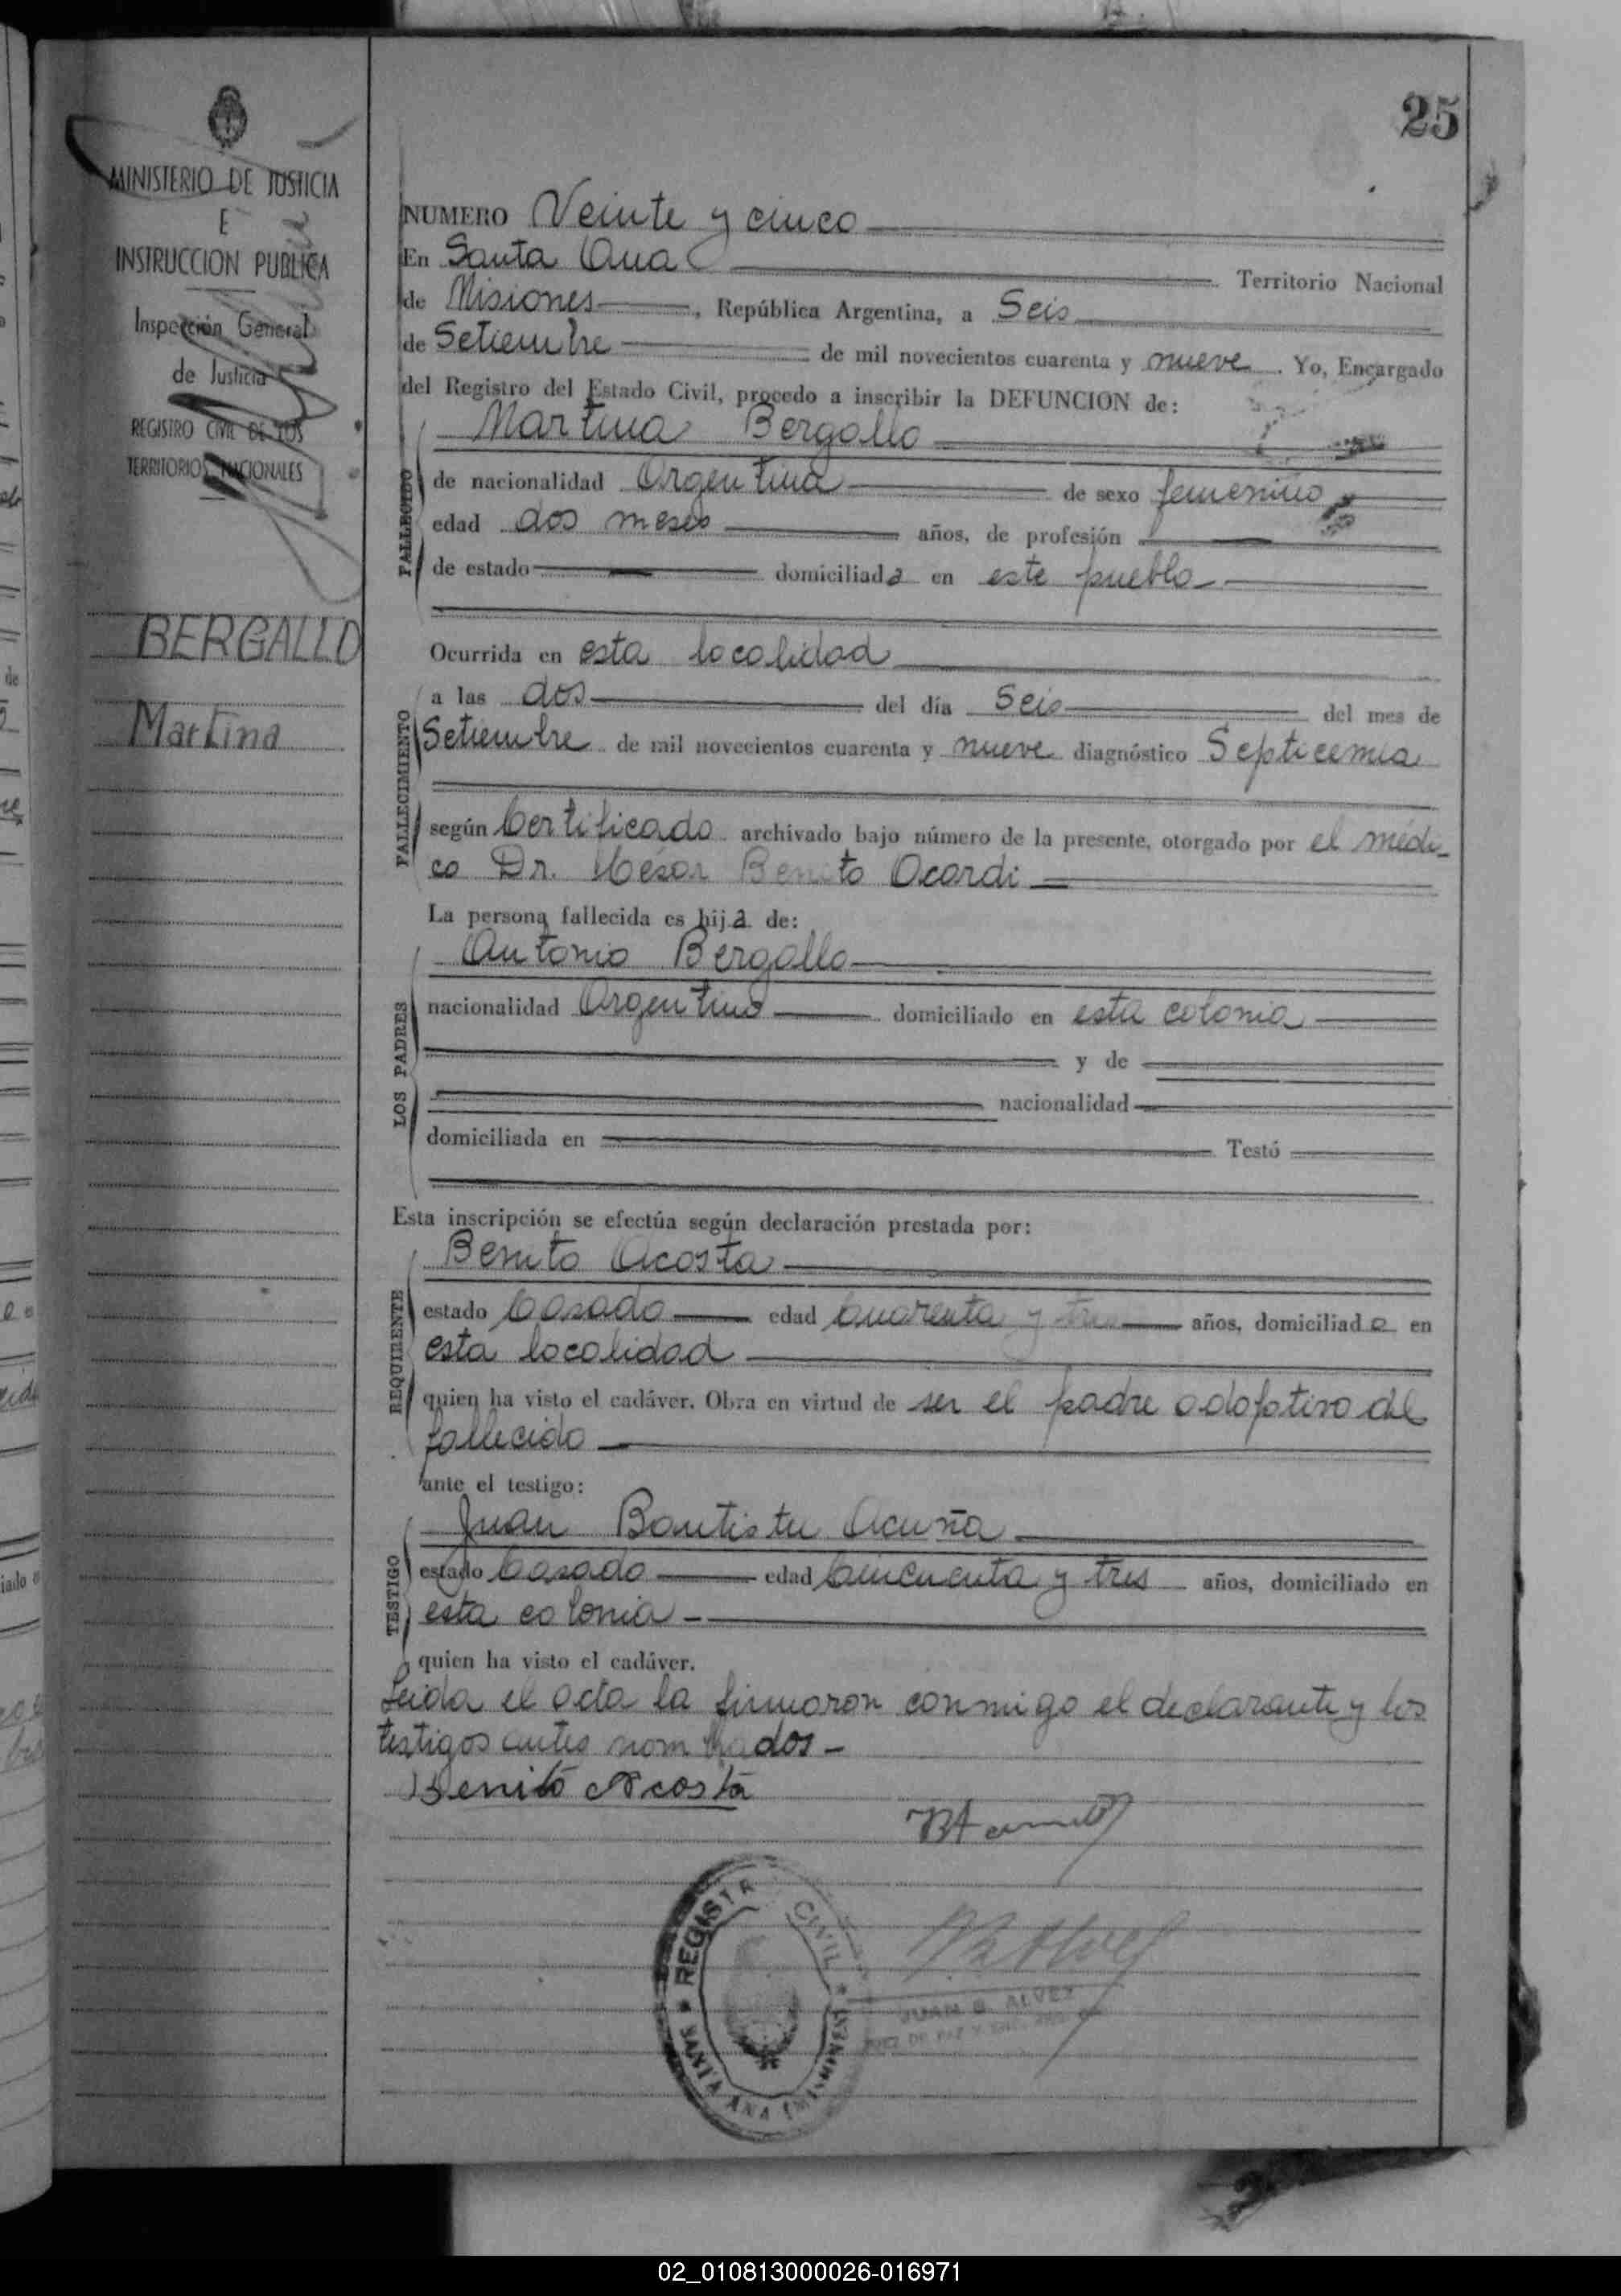 25
MINISTERIO DE JUSTICIA
E
INSTRUCCION PUBLICA
Inspección General
de Justicia
REGISTRO CIVIL DE LOS
TERRITORIOS NACIONALES
BERGALLO
Martina
NUMERO Veinte y cinco
En Santa Ana Territorio Nacional
de Misiones, República Argentina, a Seis
de Setiembre de mil novecientos cuarenta y nueve. Yo, Encargado
del Registro del Estado Civil, procedo a inscribir la DEFUNCION de:
FALLECIDO
Martina Bergallo
de nacionalidad Argentina de sexo femenino
edad dos meses años, de profesión
de estado domiciliada en este pueblo
Ocurrida en esta localidad
FALLECIMIENTO
a las dos del día Seis del mes de
Setiembre de mil novecientos cuarenta y nueve diagnóstico Septicemia
según Certificado archivado bajo número de la presente, otorgado por el médi-
co Dr. César Benito Acardi
La persona fallecida es hija de:
LOS PADRES
Antonio Bergallo
nacionalidad Argentino domiciliado en esta colonia
y de
nacionalidad
domiciliada en Testó
Esta inscripción se efectúa según declaración prestada por:
REQUIRENTE
Benito Acosta
estado Casado edad Cuarenta y tres años, domiciliado en
esta localidad
quien ha visto el cadáver. Obra en virtud de ser el padre adoptivo del
fallecido
ante el testigo:
TESTIGO
Juan Bautista Acuña
estado Casado edad Cincuenta y tres años, domiciliado en
esta colonia
quien ha visto el cadáver.
Leida el acta la firmaron conmigo el declarante y los
testigos antes nombrados-
Benito Acosta
REGISTRO CIVIL
SANTA ANA (MISIONES)
JUAN B. ALVEZ
JUEZ DE PAZ Y
02_010813000026-016971